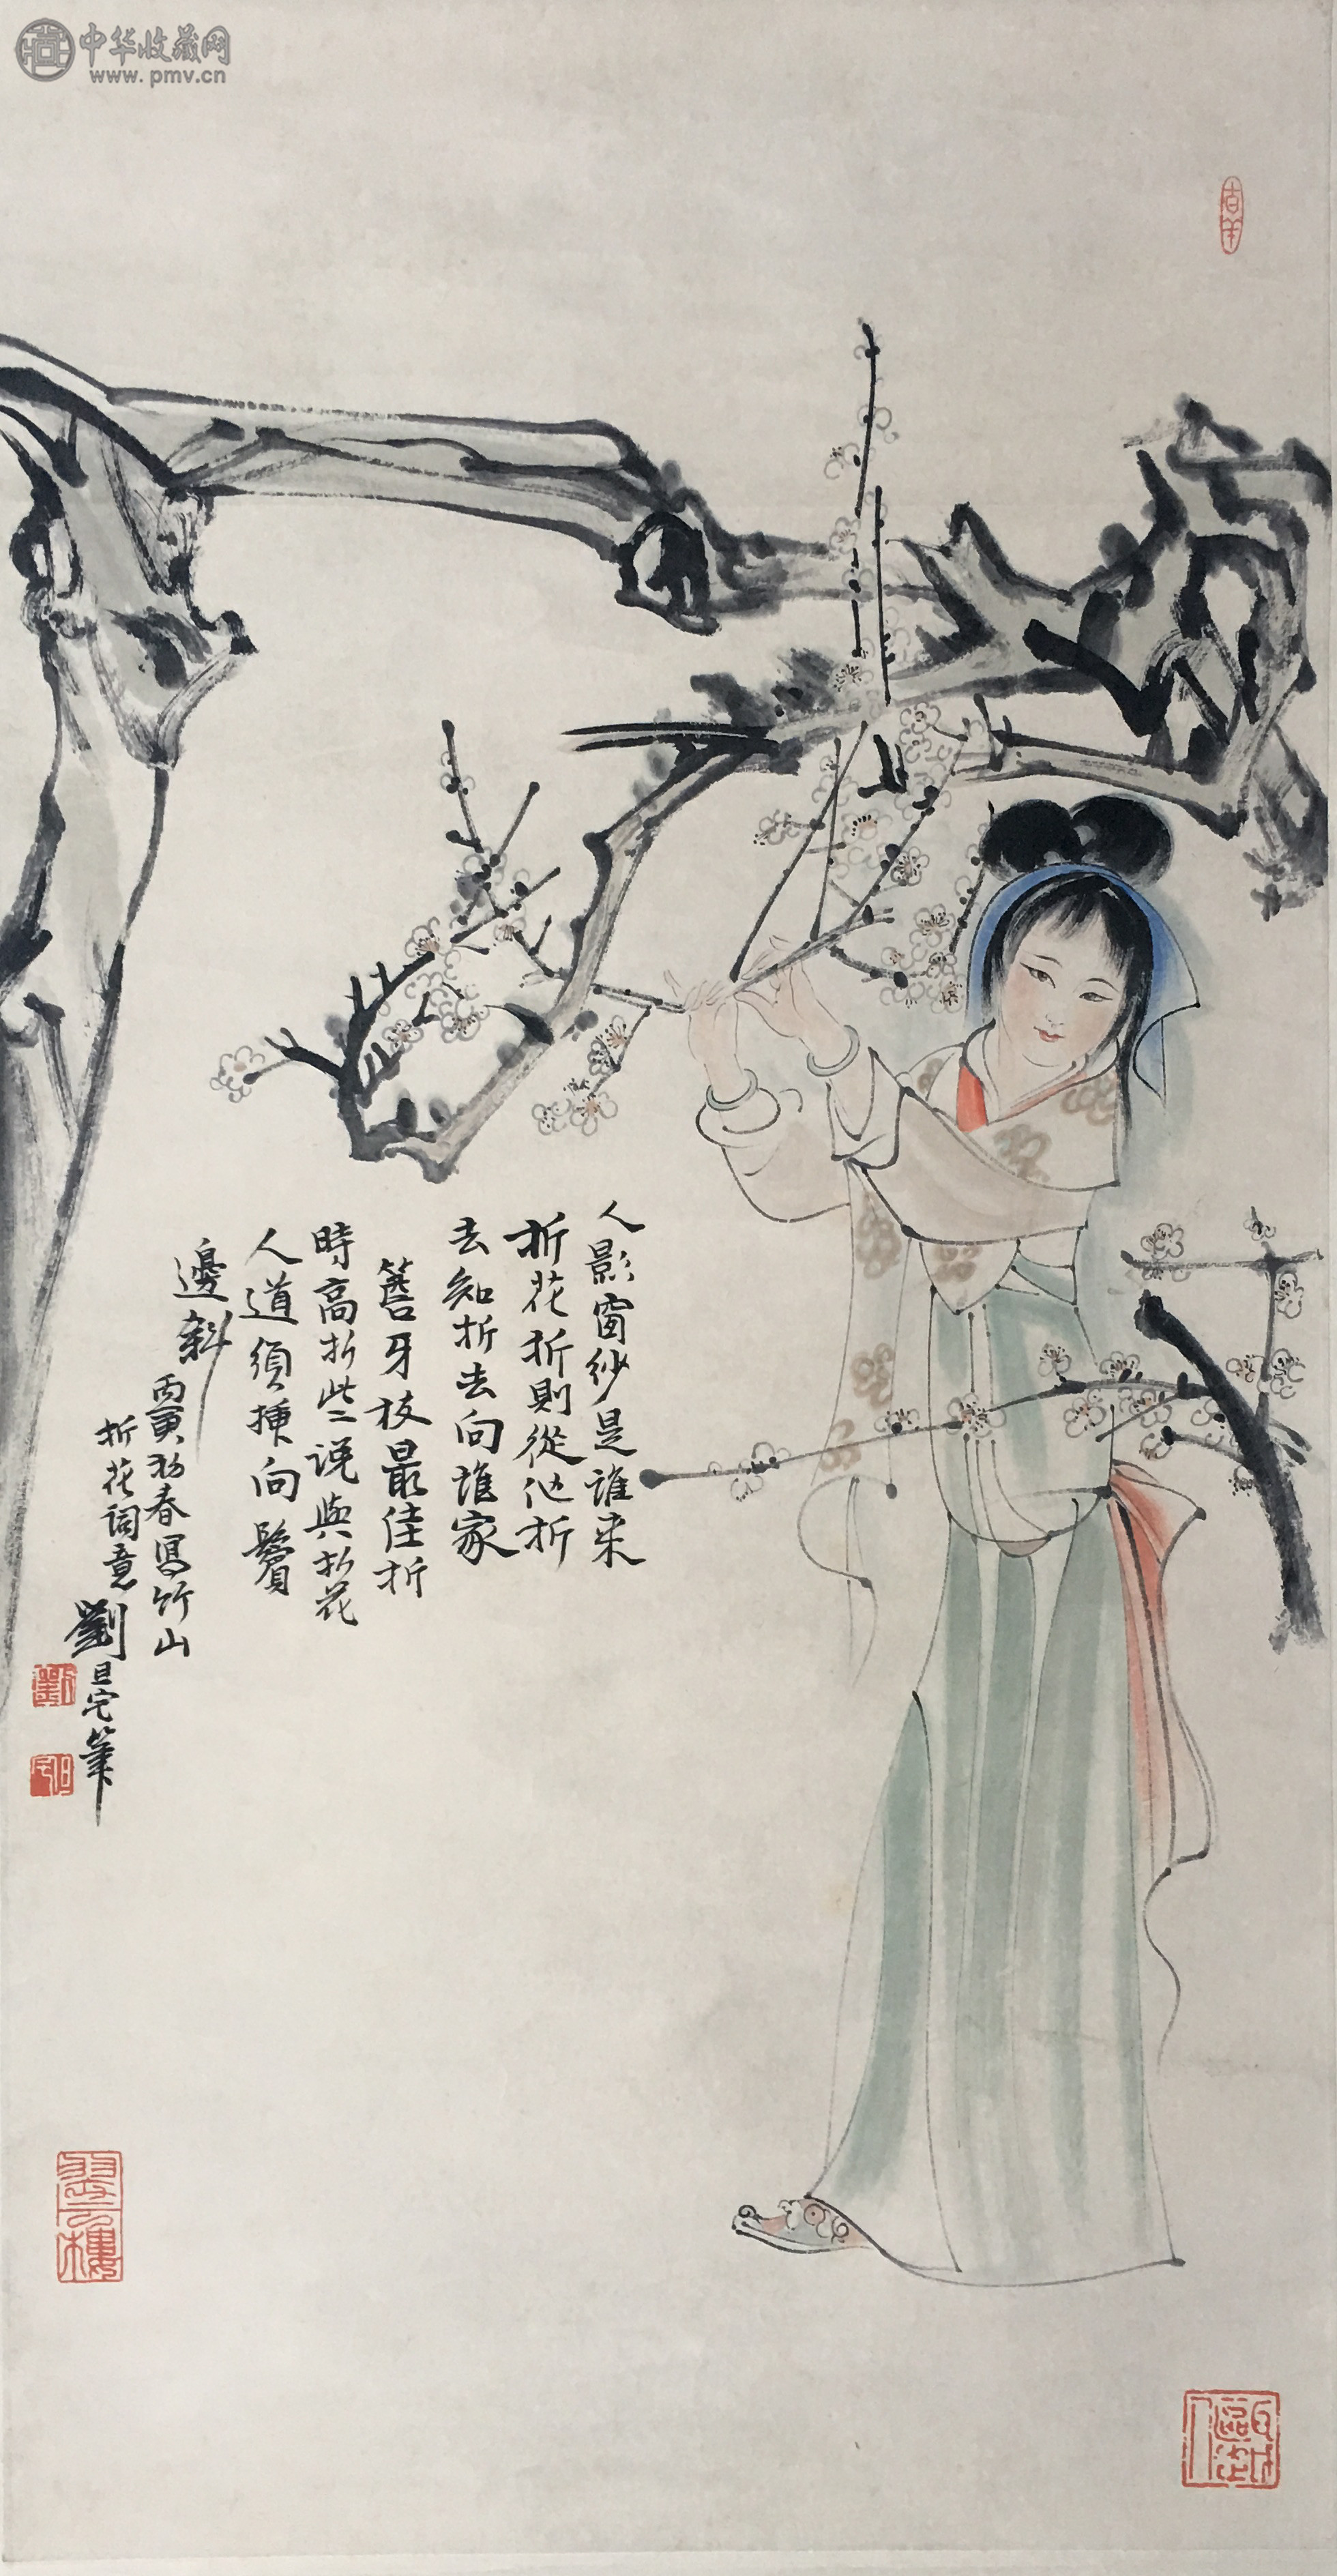 中华收藏网
www.pmv.cn
人影窗紗是誰来
折花折則從他折
去知折去向誰家
簷牙枝最佳折
時高折些説與折花
人道須揷向鬢
邊斜
丙寅初春寫竹山
折花词意
劉旦宅筆